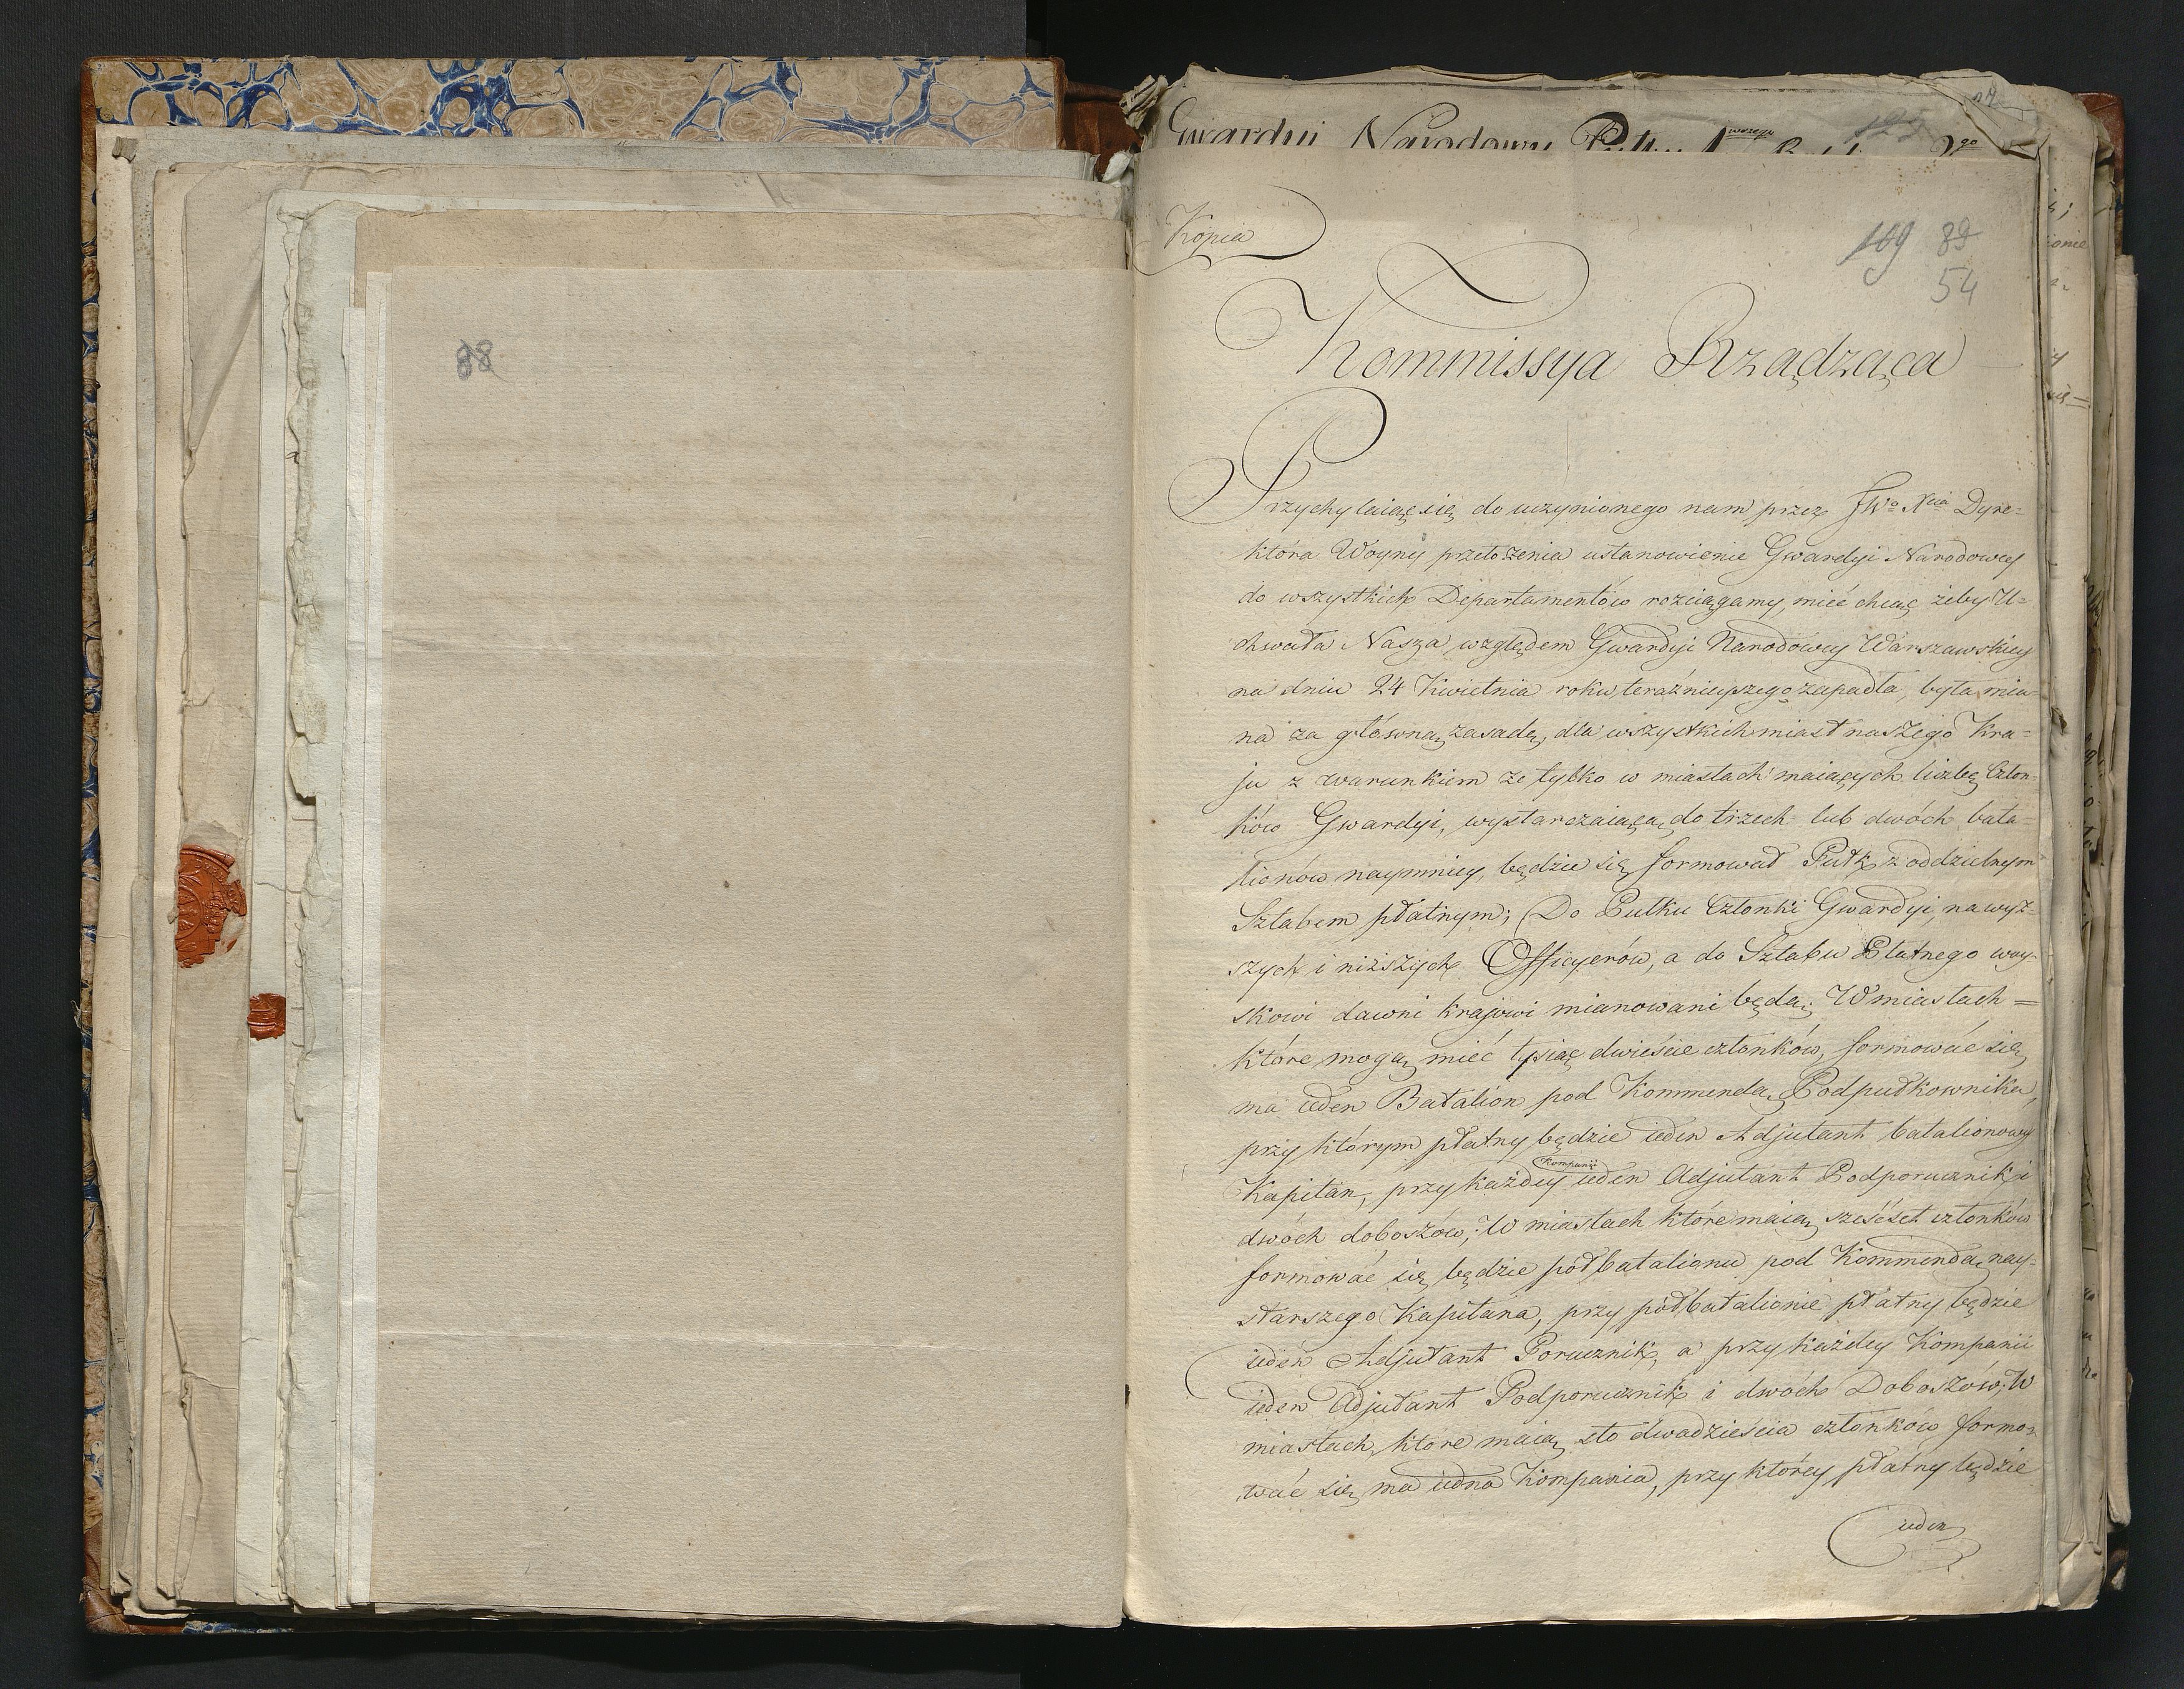 88
Gwardyi Narodowey Pułku 1 wszego
125
Kopia
109 89
54
Kommissya Rządząca
Przychylaiąc się do uczynionego nam przez JWo Xcia Dyre=
ktora Woyny przełożenia ustanowienie Gwardyi Narodowey
do wszystkich Departamentów rozciągamy, mieć chcąc żeby U=
chwała Nasza względem Gwardyi Narodowey Warszawskiey
na dniu 24 Kwietnia roku teraźnieyszego zapadła, była mia=
na za główną zasadę, dla wszystkich miast naszego Kra=
ju z warunkiem że tylko w miastach maiących liczbę Człon=
ków Gwardyi, wystarczaiącą do trzech lub dwóch bata=
lionów naymniey, będzie się formował Pułk z oddzielnym
Sztabem płatnym; Do Pułku Członki Gwardyi, na wyż=
szych i niższych Officyerów, a do Sztabu Płatnego woy=
skowi dawni krajowi mianowani będą; W miastach =
które mogą mieć tysiąc dwieście członków, formować się
ma ieden Batalion pod Kommendą Podpułkownika,
przy którym płatny będzie ieden Adjutant batalionowy
Kapitan, przy każdey Kompanii ieden Adjutant Podporucznik i
dwóch doboszów; W miastach które maią sześćset członków
formować się będzie półbatalionu pod Kommendą nay=
starszego Kapitana, przy półbatalionie płatny będzie
ieden Adjutant Porucznik, a przy każdey Kompanii
ieden Adjutant Podporucznik i dwóch Doboszów; W
miastach, które maią sto dwadzieścia członków formo=
wać się ma iedna Kompania, przy którey płatny będzie
ieden